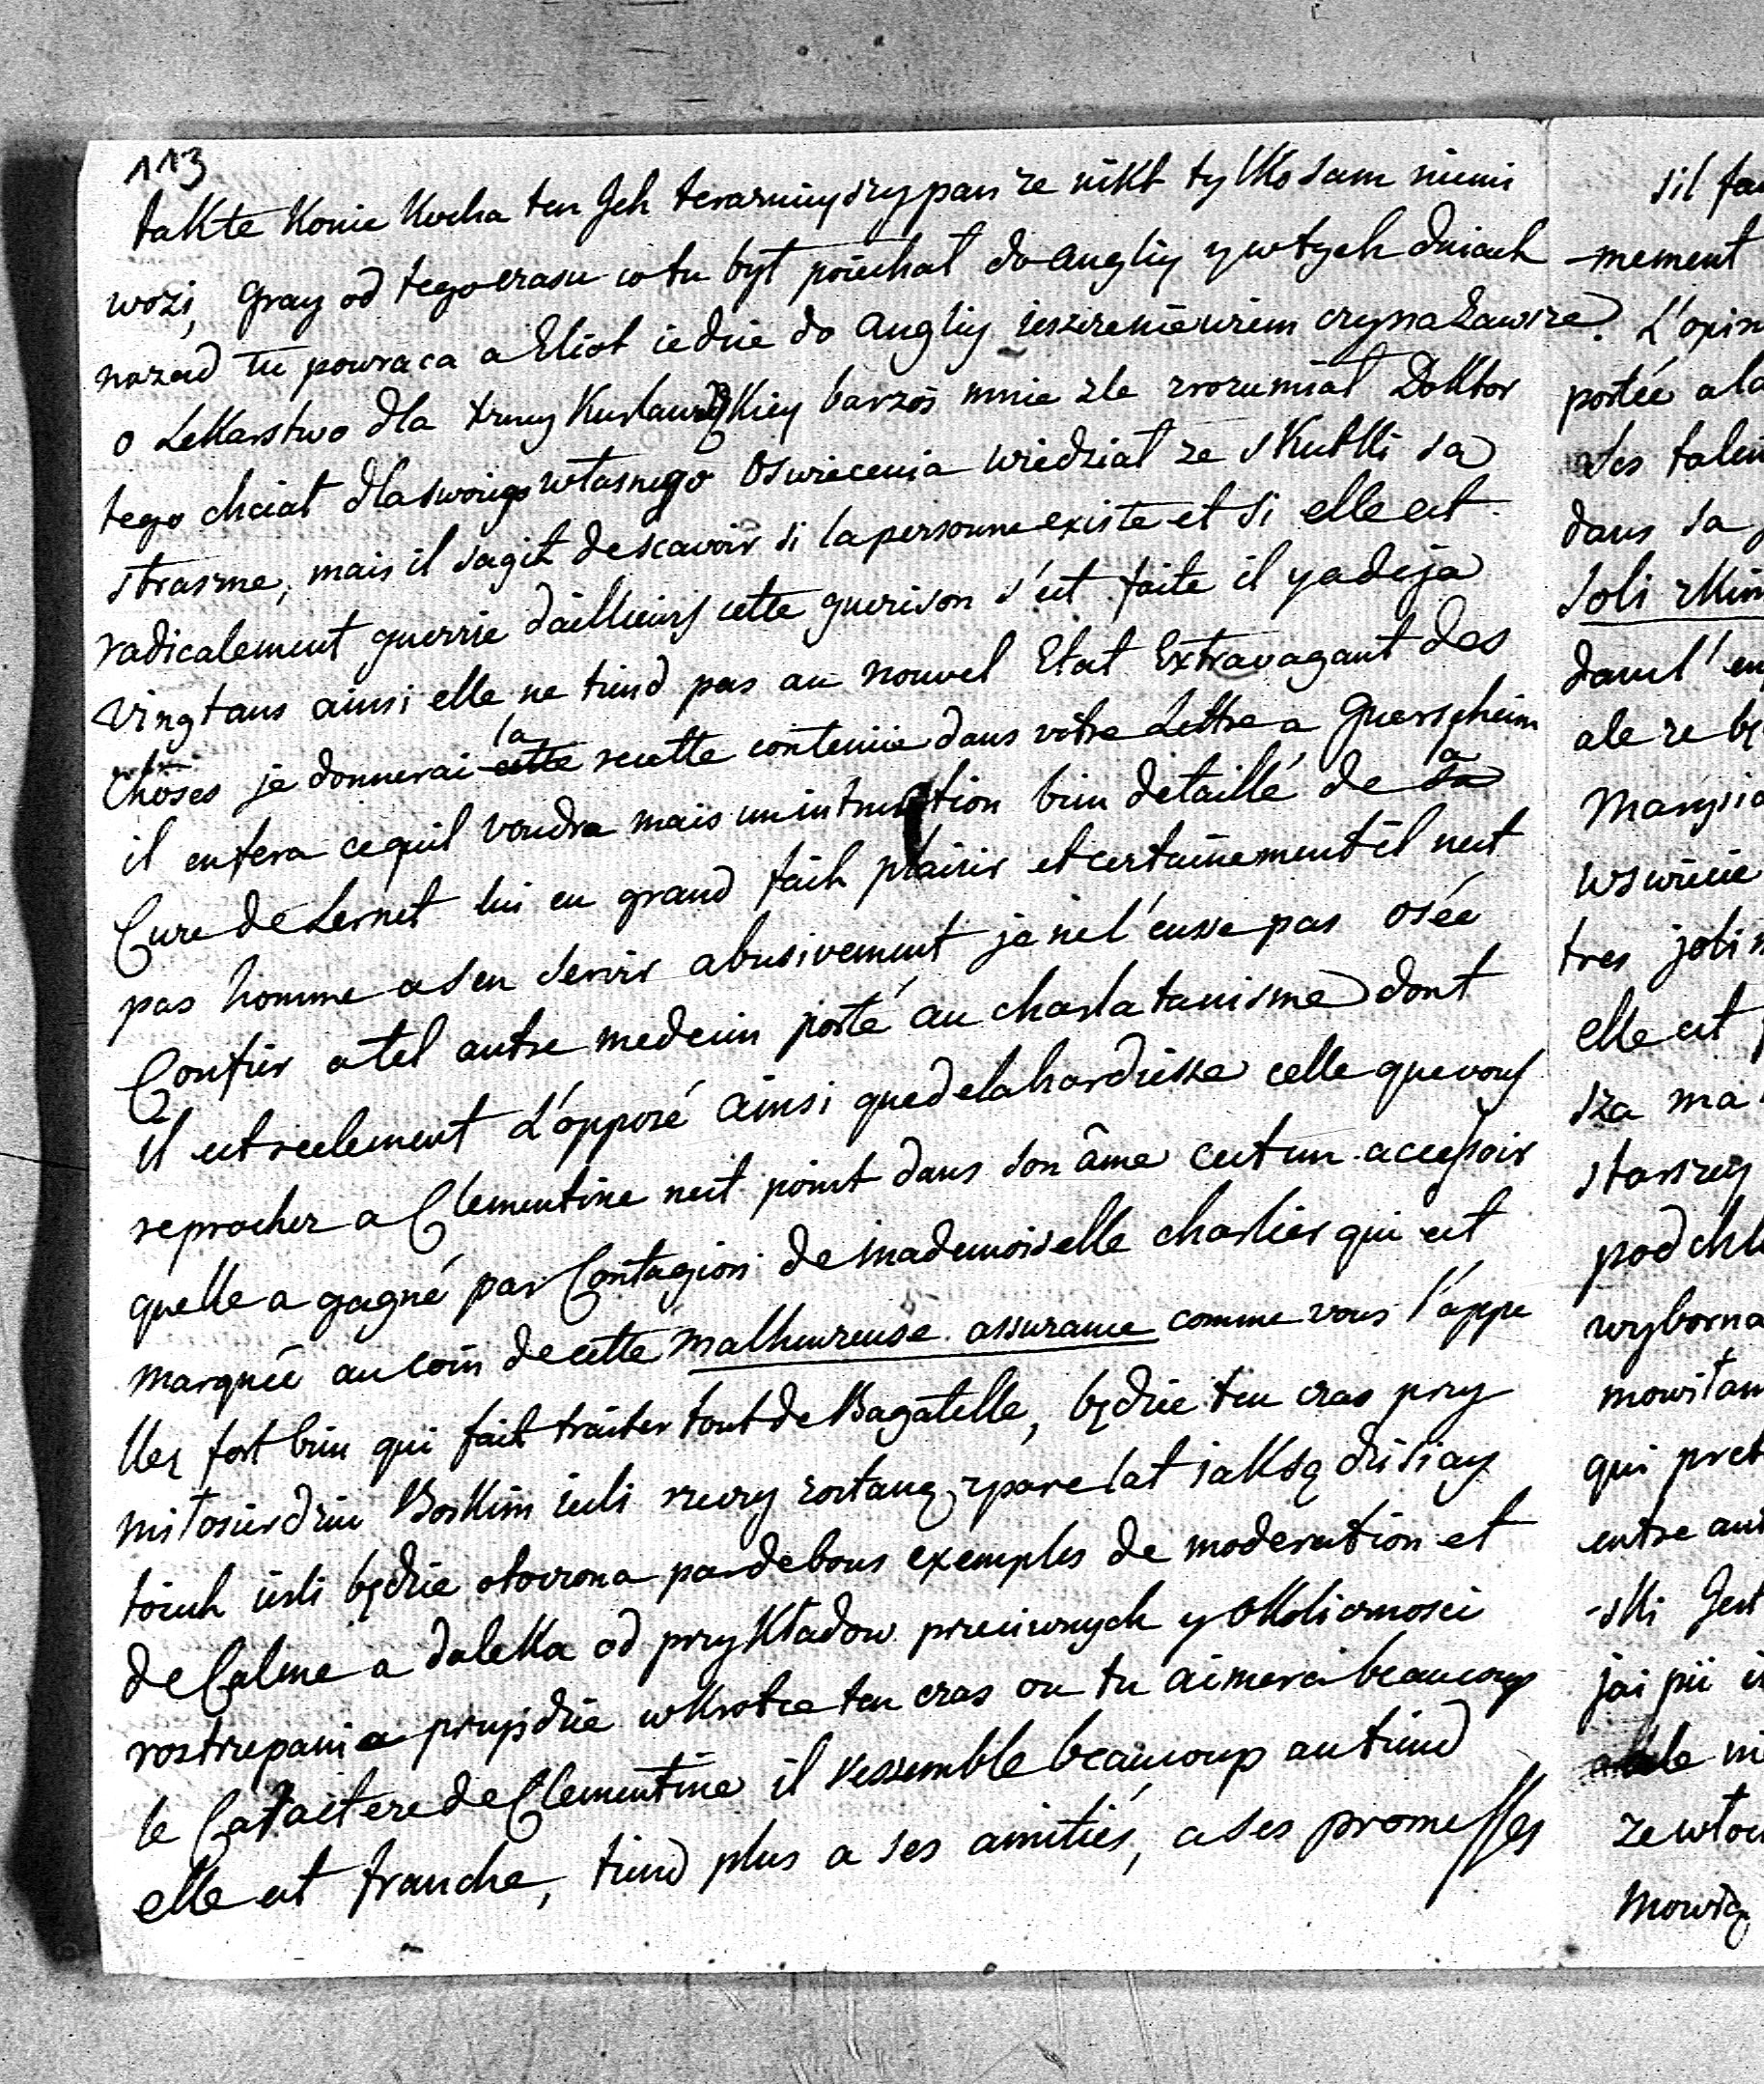 113
takte Konie Kocha ten Jch terazniejszy pan ze nikt tylko sam niemi
wozi, Gray od tego czasu co tu był poiechał do Angliy y w tych dniach
nazad Tu powraca a Eliot iedzie do Angliy ieszcze nie wiem czy na zawsze.
o Lekarstwo dla Kurlandzkiey barzos mnie zle zrozumiał Doktor
tego chciał dla swoiego własnego Oswiecenia wiedział ze skutki sa
straszne, mais il sagit de scavoir si la personne existe et si elle est
radicalement guerrie dailleurs cette guerison s'est faite il y a deja
vingt ans ainsi elle ne tiend pas au nouvel Etat Extravagant des
Choses je donnerai cette la recette contenüe dans votre Lettre a Guerscheim
il en fera ce quil voudra mais un instruction bien detaillé de sa la
Cure de Lernet lui en grand faih plaisir et certainement il nest
pas homme a sen servir abusivement je ne l'eusse pas osée
Confier a tel autre medecin porté au charlatanisme dont
il est reelement L'opposé ainsi que de la hardiesse celle que vous
reprochez a Clementine nest point dans son âme cest un accessoir
quelle a gagné par Contagion de mademoiselle charlier qui est
marquée au coin de cette malheureuse assurance comme vous l'appe
llez fort bien qui fait traiter tout de Bagatelle, będzie ten czas przy
miłosierdziu Boskim iesli rzeczy zostaną zpare lat iak są dzisiay
toiuh iesli będzie otoczona par de bons exemples de moderation et
de Calme a daleka od przykładow przeciwnych y okolicznosci
roztrzepania przyidzie wkrotce ten czas ou tu aimera beaucoup
le Caractere de Clementine il ressemble beaucoup au tiend
elle est franche, tiend plus a ses amitiés, a ses promesses
sil fa
-mement
L'opin
portée a la
ses talen
dans sa
Joli
dans l'en
ale ze bę
Marysia
wswiecie
tres joli
elle est
sza ma
starszey
pod
wyborna
mowiłam
qui pret
entre aut
-ski Jest
jai
ni
ze
Mowią